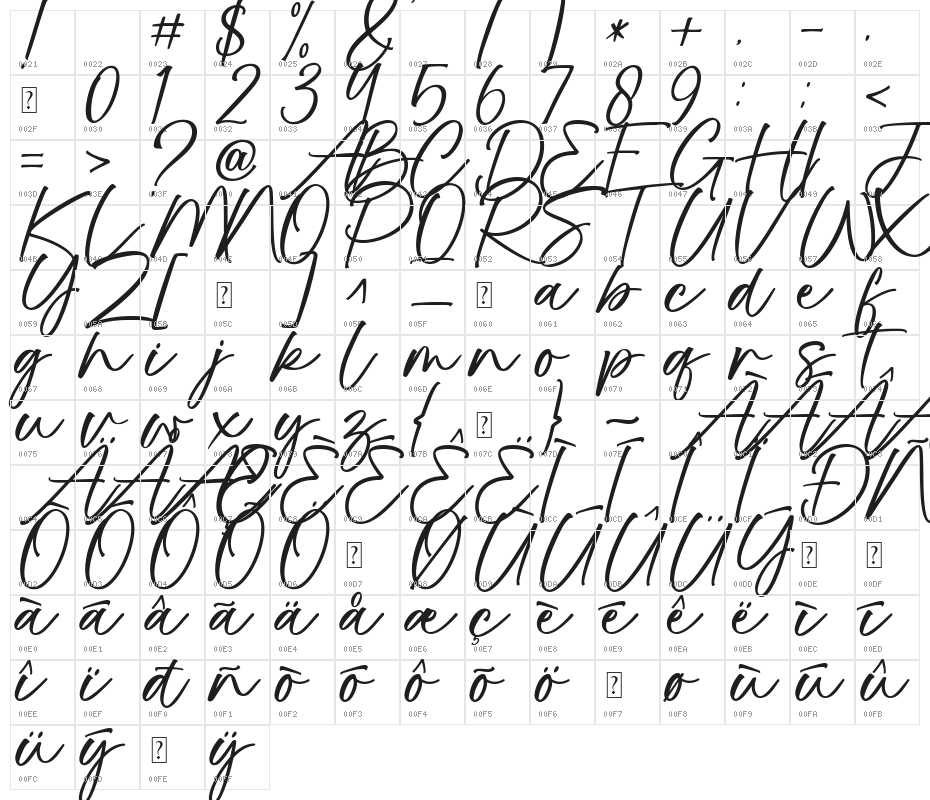 ! # $ % & ' ( ) * + , - .
0021 0022 0023 0024 0025 0026 0027 0028 0029 002A 002B 002C 002D 002E
0 1 2 3 4 5 6 7 8 9 : ; <
002F 0030 0031 0032 0033 0034 0035 0036 0037 0038 0039 003A 003B 003C
= > ? @ A B C D E F G H I J
003D 003E 003F 0040 0041 0042 0043 0044 0045 0046 0047 0048 0049 004A
K L M N O P Q R S T U V W X
004B 004C 004D 004E 004F 0050 0051 0052 0053 0054 0055 0056 0057 0058
Y Z [ ] ^ _ a b c d e f
0059 005A 005B 005C 005D 005E 005F 0060 0061 0062 0063 0064 0065 0066
g h i j k l m n o p q r s t
0067 0068 0069 006A 006B 006C 006D 006E 006F 0070 0071 0072 0073 0074
u v w x y z { } ~ À Á Â Ã
0075 0076 0077 0078 0079 007A 007B 007C 007D 007E 00C0 00C1 00C2 00C3
Ä Å Æ Ç È É Ê Ë Ì Í Î Ï Ð Ñ
00C4 00C5 00C6 00C7 00C8 00C9 00CA 00CB 00CC 00CD 00CE 00CF 00D0 00D1
Ò Ó Ô Õ Ö Ø Ù Ú Û Ü Ý
00D2 00D3 00D4 00D5 00D6 00D7 00D8 00D9 00DA 00DB 00DC 00DD 00DE 00DF
à á â ã ä å æ ç è é ê ë ì í
00E0 00E1 00E2 00E3 00E4 00E5 00E6 00E7 00E8 00E9 00EA 00EB 00EC 00ED
î ï ð ñ ò ó ô õ ö ø ù ú û
00EE 00EF 00F0 00F1 00F2 00F3 00F4 00F5 00F6 00F7 00F8 00F9 00FA 00FB
ü ý ÿ
00FC 00FD 00FE 00FF